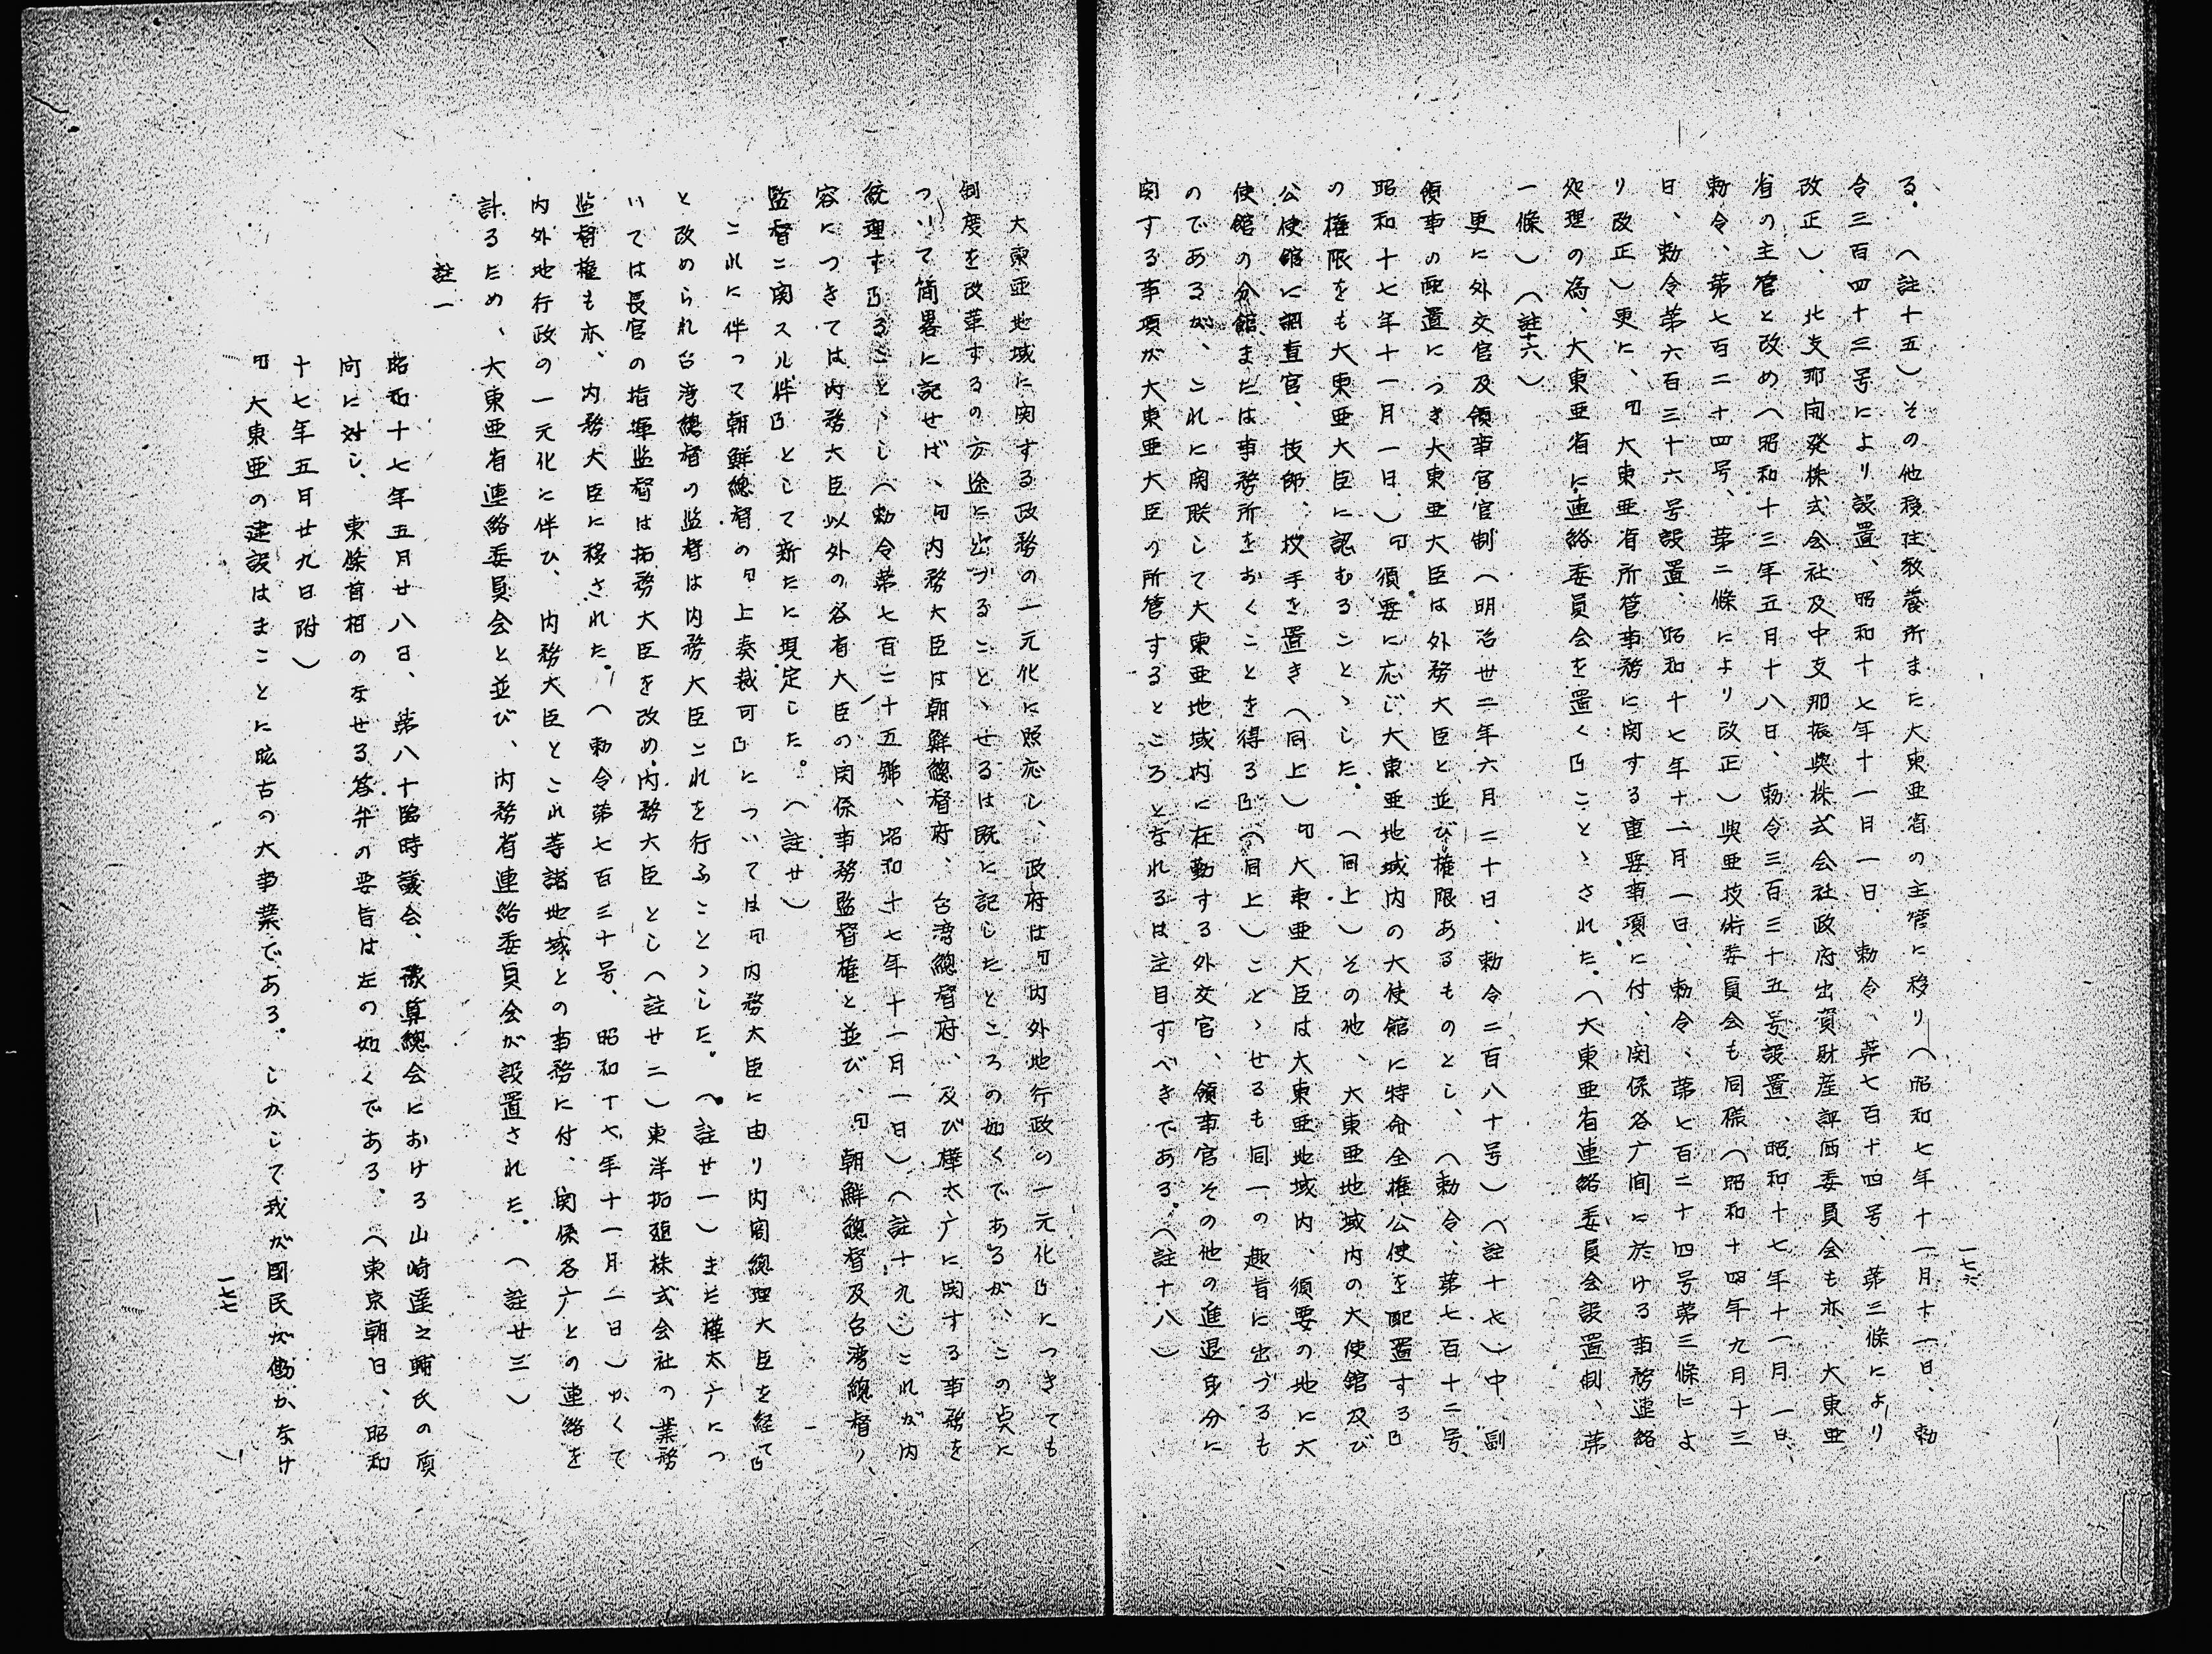 一七六
る。（註十五）その他移住教養所また大東亜省の主管に移り（昭和七年十一月十一日、勅
令三百四十三号により設置、昭和十七年十一日一日、勅令、第七百十四号、第三條により
改正）、北支那開発株式会社及中支那振興株式会社政府出資財産評価委員会も亦、大東亜
省の主管と改め（昭和十三年五月十八日、勅令三百三十五号設置、昭和十七年十一月一日、
勅令、第七百二十四号、第二條により改正）興亜技術委員会も同様（昭和十四年九月十三
日、勅令第六百三十六号設置、昭和十七年十一月一日、勅令、第七百二十四号第三條によ
り改正）更に、『大東亜省所管事務に関する重要事項に付、関係各庁間に於ける事務連絡
処理の為、大東亜省に連絡委員会を置く』ことゝされた。（大東亜省連絡委員会設置制、第
一條）（註十六）
更に外交官及領事官官制（明治卅二年六月二十日、勅令二百八十号）（註十七）中、副
領事の配置につき大東亜大臣は外務大臣と並び権限あるものとし、（勅令、第七百十二号、
昭和十七年十一月一日、）『須要に応じ大東亜地域内の大使館に特命全権公使を配置する』
の権限をも大東亜大臣に認むることゝした。（同上）その他、大東亜地域内の大使館及び
公使館に調査官、技師、技手を置き（同上）『大東亜大臣は大東亜地域内、須要の地に大
使館の分館または事務所をおくことを得る』（同上）ことゝせるも同一の趣旨に出づるも
のであるが、これに関联して大東亜地域内に在勤する外交官、領事官その他の進退身分に
関する事項が大東亜大臣の所管するところとなれるは注目すべきである。（註十八）
大東亜地域に関する政務の一元化に照応し、政府は『内外地行政の一元化』につきても
制度を改革するの方途に出づることゝせるは既に記したところの如くであるが、この点に
ついて簡畧に記せば、『内務大臣は朝鮮總督府、台湾總督府、及び樺太庁に関する事務を
統理す』ることゝし（勅令第七百二十五號、昭和十七年十一月一日）、（註十九）これが内
容につきては内務大臣以外の各省大臣の関係事務監督権と並び、『朝鮮總督及台湾總督ノ、
監督ニ関スル件』として新たに規定した。（註廿）
これに伴って朝鮮總督の『上奏裁可』については『内務大臣に由り内閣總理大臣を経て』
と改められ台湾總督の監督は内務大臣これを行ふことゝした。（註廿一）また樺太庁につ
いては長官の指揮監督は拓務大臣を改め内務大臣とし（註廿二）東洋拓殖株式会社の業務
監督権も亦、内務大臣に移された。（勅令第七百三十号、昭和十七年十一月一日）かくて
内外地行政の一元化に伴ひ、内務大臣とこれ等諸地域との事務に付、関係各庁との連絡を
計るため、大東亜省連絡委員会と並び、内務省連絡委員会が設置された。（註廿三）
註一
昭和十七年五月廿八日、第八十臨時議会、豫算總会における山崎達之輔氏の質
问に対し、東條首相のなせる答弁の要旨は左の如くである。（東京朝日、昭和
十七年五月廿九日附）
『大東亜の建設はまことに昿古の大事業である。しかして我が國民が働かなけ
一七七